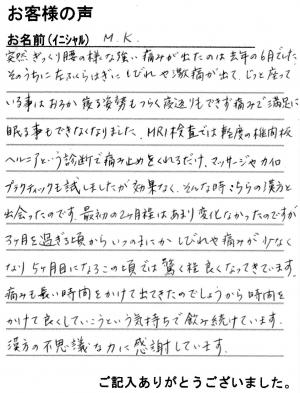 お客様の声
お名前(イニシャル) M.K.
突然ぎっくり腰の様な強い痛みが出たのは去年の6月でした。
そのうちに左ふくらはぎにしびれや激痛が出て、じっと座って
いる事はおろか寝る姿勢もつらく寝返りもできず痛みで満足に
眠る事もできなくなりました。MRI検査では軽度の椎間板
ヘルニアという診断で痛み止めをくれるだけ、マッサージやカイロ
プラクティックも試しましたが効果なく、そんな時こちらの漢方と
出会ったのです。最初の2ヶ月程はあまり変化なかったのですが
3ヶ月を過ぎる頃からいつのまにかしびれや痛みが少なく
なり5ヶ月目になるこの頃では驚く程良くなってきています。
痛みも長い時間をかけて出てきたのでしょうから時間を
かけて良くしていこうという気持ちで飲み続けています。
漢方の不思議な力に感謝しています。
ご記入ありがとうございました。